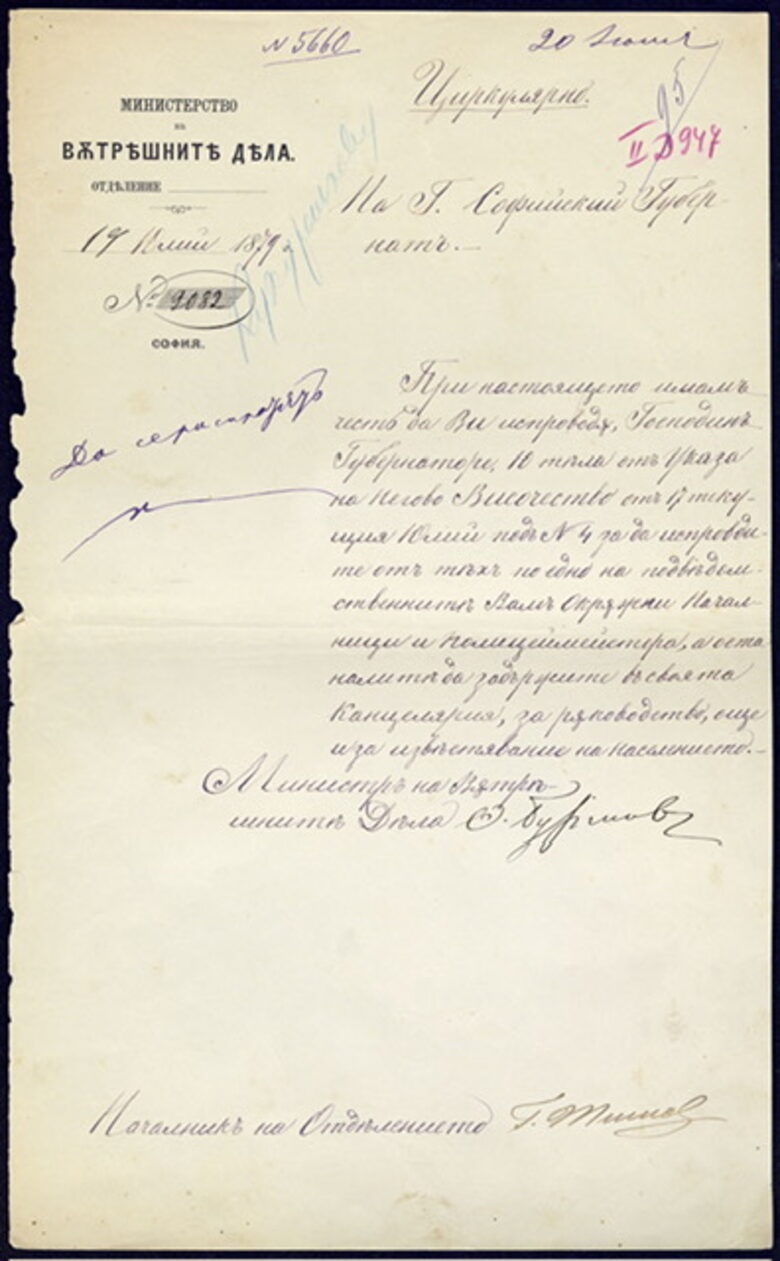 N 5660
20 Юлий
Циркулярно.
95
II 947
МИНИСТЕРСТВО
на
ВѪТРѢШНИТѢ ДѢЛА.
ОТДѢЛЕНИЕ
19 Юлий 1879 г.
№ 9082
СОФИЯ.
На Г. Софийский Губер-
натъ.—
При настоящето имамъ
честь да Ви испроводя, Господинъ
Губернаторе, 10 тѣла отъ Указа
на Негово Височество отъ 17 теку-
щия Юлий подъ N 4 за да испроводи-
те отъ тѣхъ по едно на подвѣдом-
ственнитѣ Вамъ Окрѫжни Начал-
ници и Полицеймейстера, а оста
налитѣ да задържите въ своята
Канцелярия, за рѫководство, още
и за извѣстявание на населението.—
Да се распоредъ
Министръ на Вѫтрѣ-
шнитѣ Дѣла Г. Бурмовъ
Началникъ на Отдѣлението